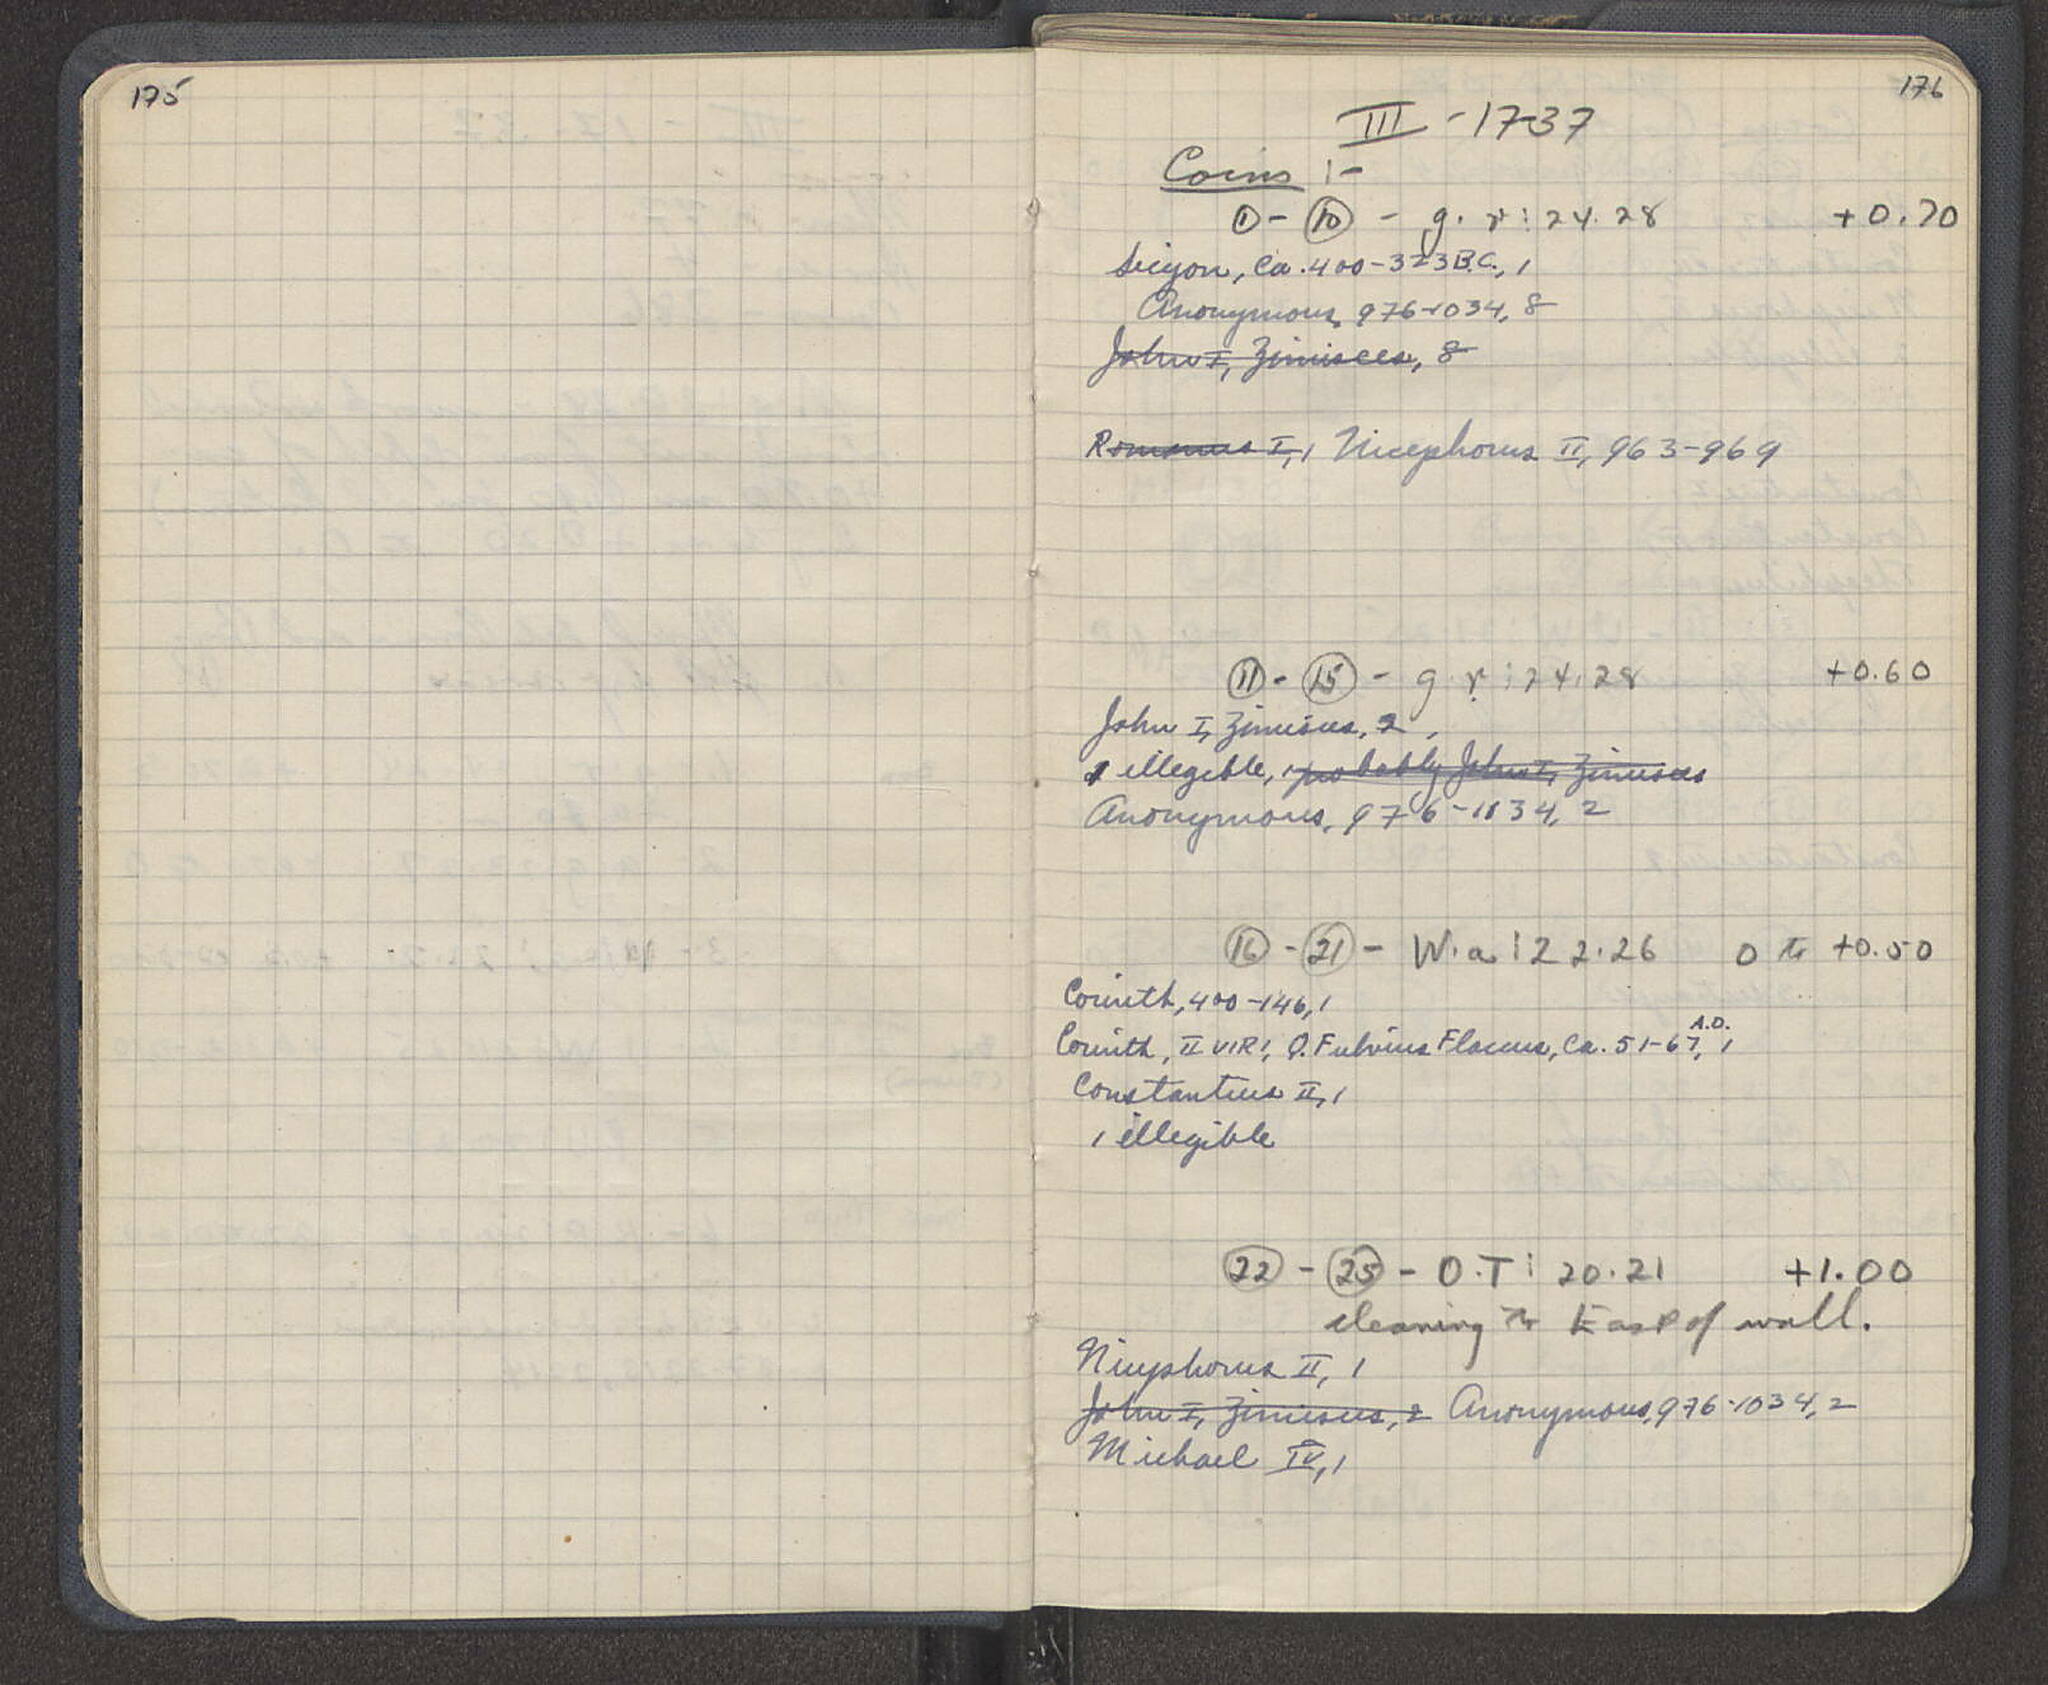 175
176
III - 17-37
Coins :-
① - ⑩ - g. r : 24.28 +0.70
Sicyon, ca. 400-323 B.C., 1
Anonymous, 976-1034, 8
John I, Zimisces, 8
Romanus I, 1 Nicephorus II, 963-969
⑪ - ⑮ - g. r : 24.28 +0.60
John I, Zimisces, 2,
1 illegible, probably John I, Zimisces
Anonymous, 976-1034, 2
⑯ - ㉑ - W.a : 22.26 0 to +0.50
Corinth, 400-146, 1
Corinth, II VIRI, Q. Fulvius Flaccus, ca. 51-67, A.D. 1
Constantius II, 1
1 illegible
㉒ - ㉕ - O.T : 20.21 +1.00
cleaning to East of wall.
Nicephorus II, 1
John I, Zimisces, 2 Anonymous, 976-1034, 2
Michael IV, 1